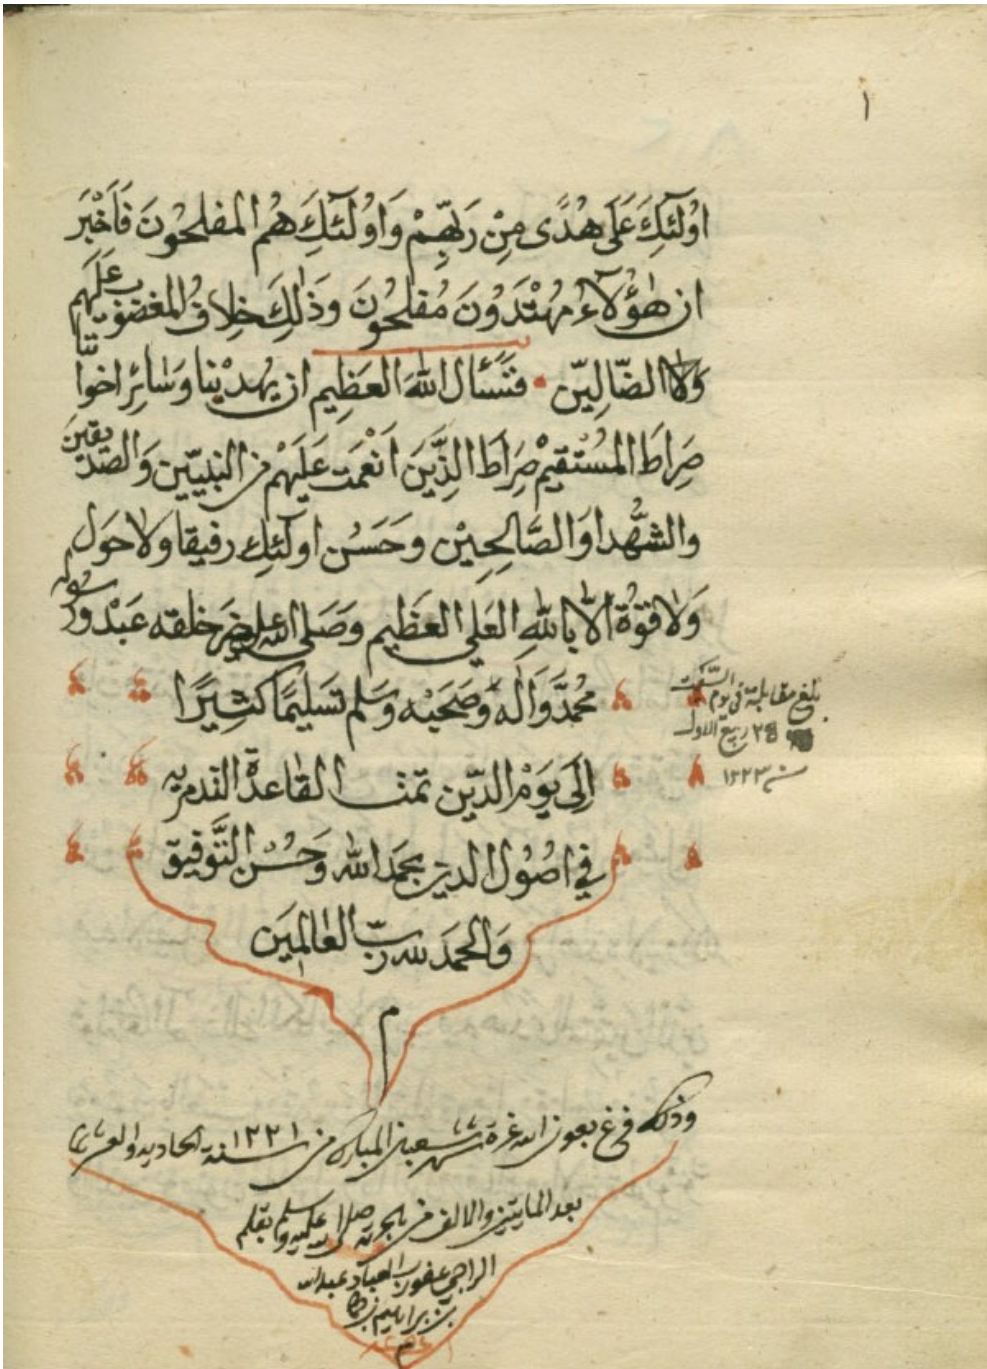 ١
اولَٓئكَ عَلَى هُدًى مِنْ رَبِّهِمْ وَاوُلَٓئكَ هُم المفلحُونَ فَاَخْبَرَ
ان هٰؤُلآءِ مُهْتَدُونَ مُفلحُونَ وَذٰلِكَ خِلافُ المغضوب عَلَيهم
وَلاالضّالِيّن فنَسْئال اللهَ العَظِيم ان يهْديْنا وَسَائِر اخواننا
صِرَاطَ المسُتقيمْ صِرَاطَ الذَّيَن اَنْعَمت عَلَيَهمْ من النبيّين وَالصديقينَ
والشُّهدا وَالصَّالحِيْن وحَسُن اولَٓئك رفيقا ولا حَول
وَلاقوُةَ الاّ باللهِ العَلي العَظِيم وصَلى الله على خير خلقه عَبْد ورسوله
محُمَّد وَآله وَصَحَبْه وَسَلم تسَليَمًا كثِيرًا
الَى يَوَمْ الديّن تمت القاعدَة التدمريه
في اصُوُل الدين بحمَد الله وَحُسْن التَّوفيق
وَالحمَد لله ربّ العٰالميَن
م
بلغ مقابلة في يوم السبت
٢٨ ربيع الاول
سنة ١٢٢٣
وذلك فرغ بعون الله غرة شهر شعبان المبارك من سنة ١٢٢١ الحاديه والعشرين
بعد المايتين والالف من الهجرته صلى الله عليه وسلم بقلم
الراجي عفو رب العباد عبد الله
بن براهيم بن
م